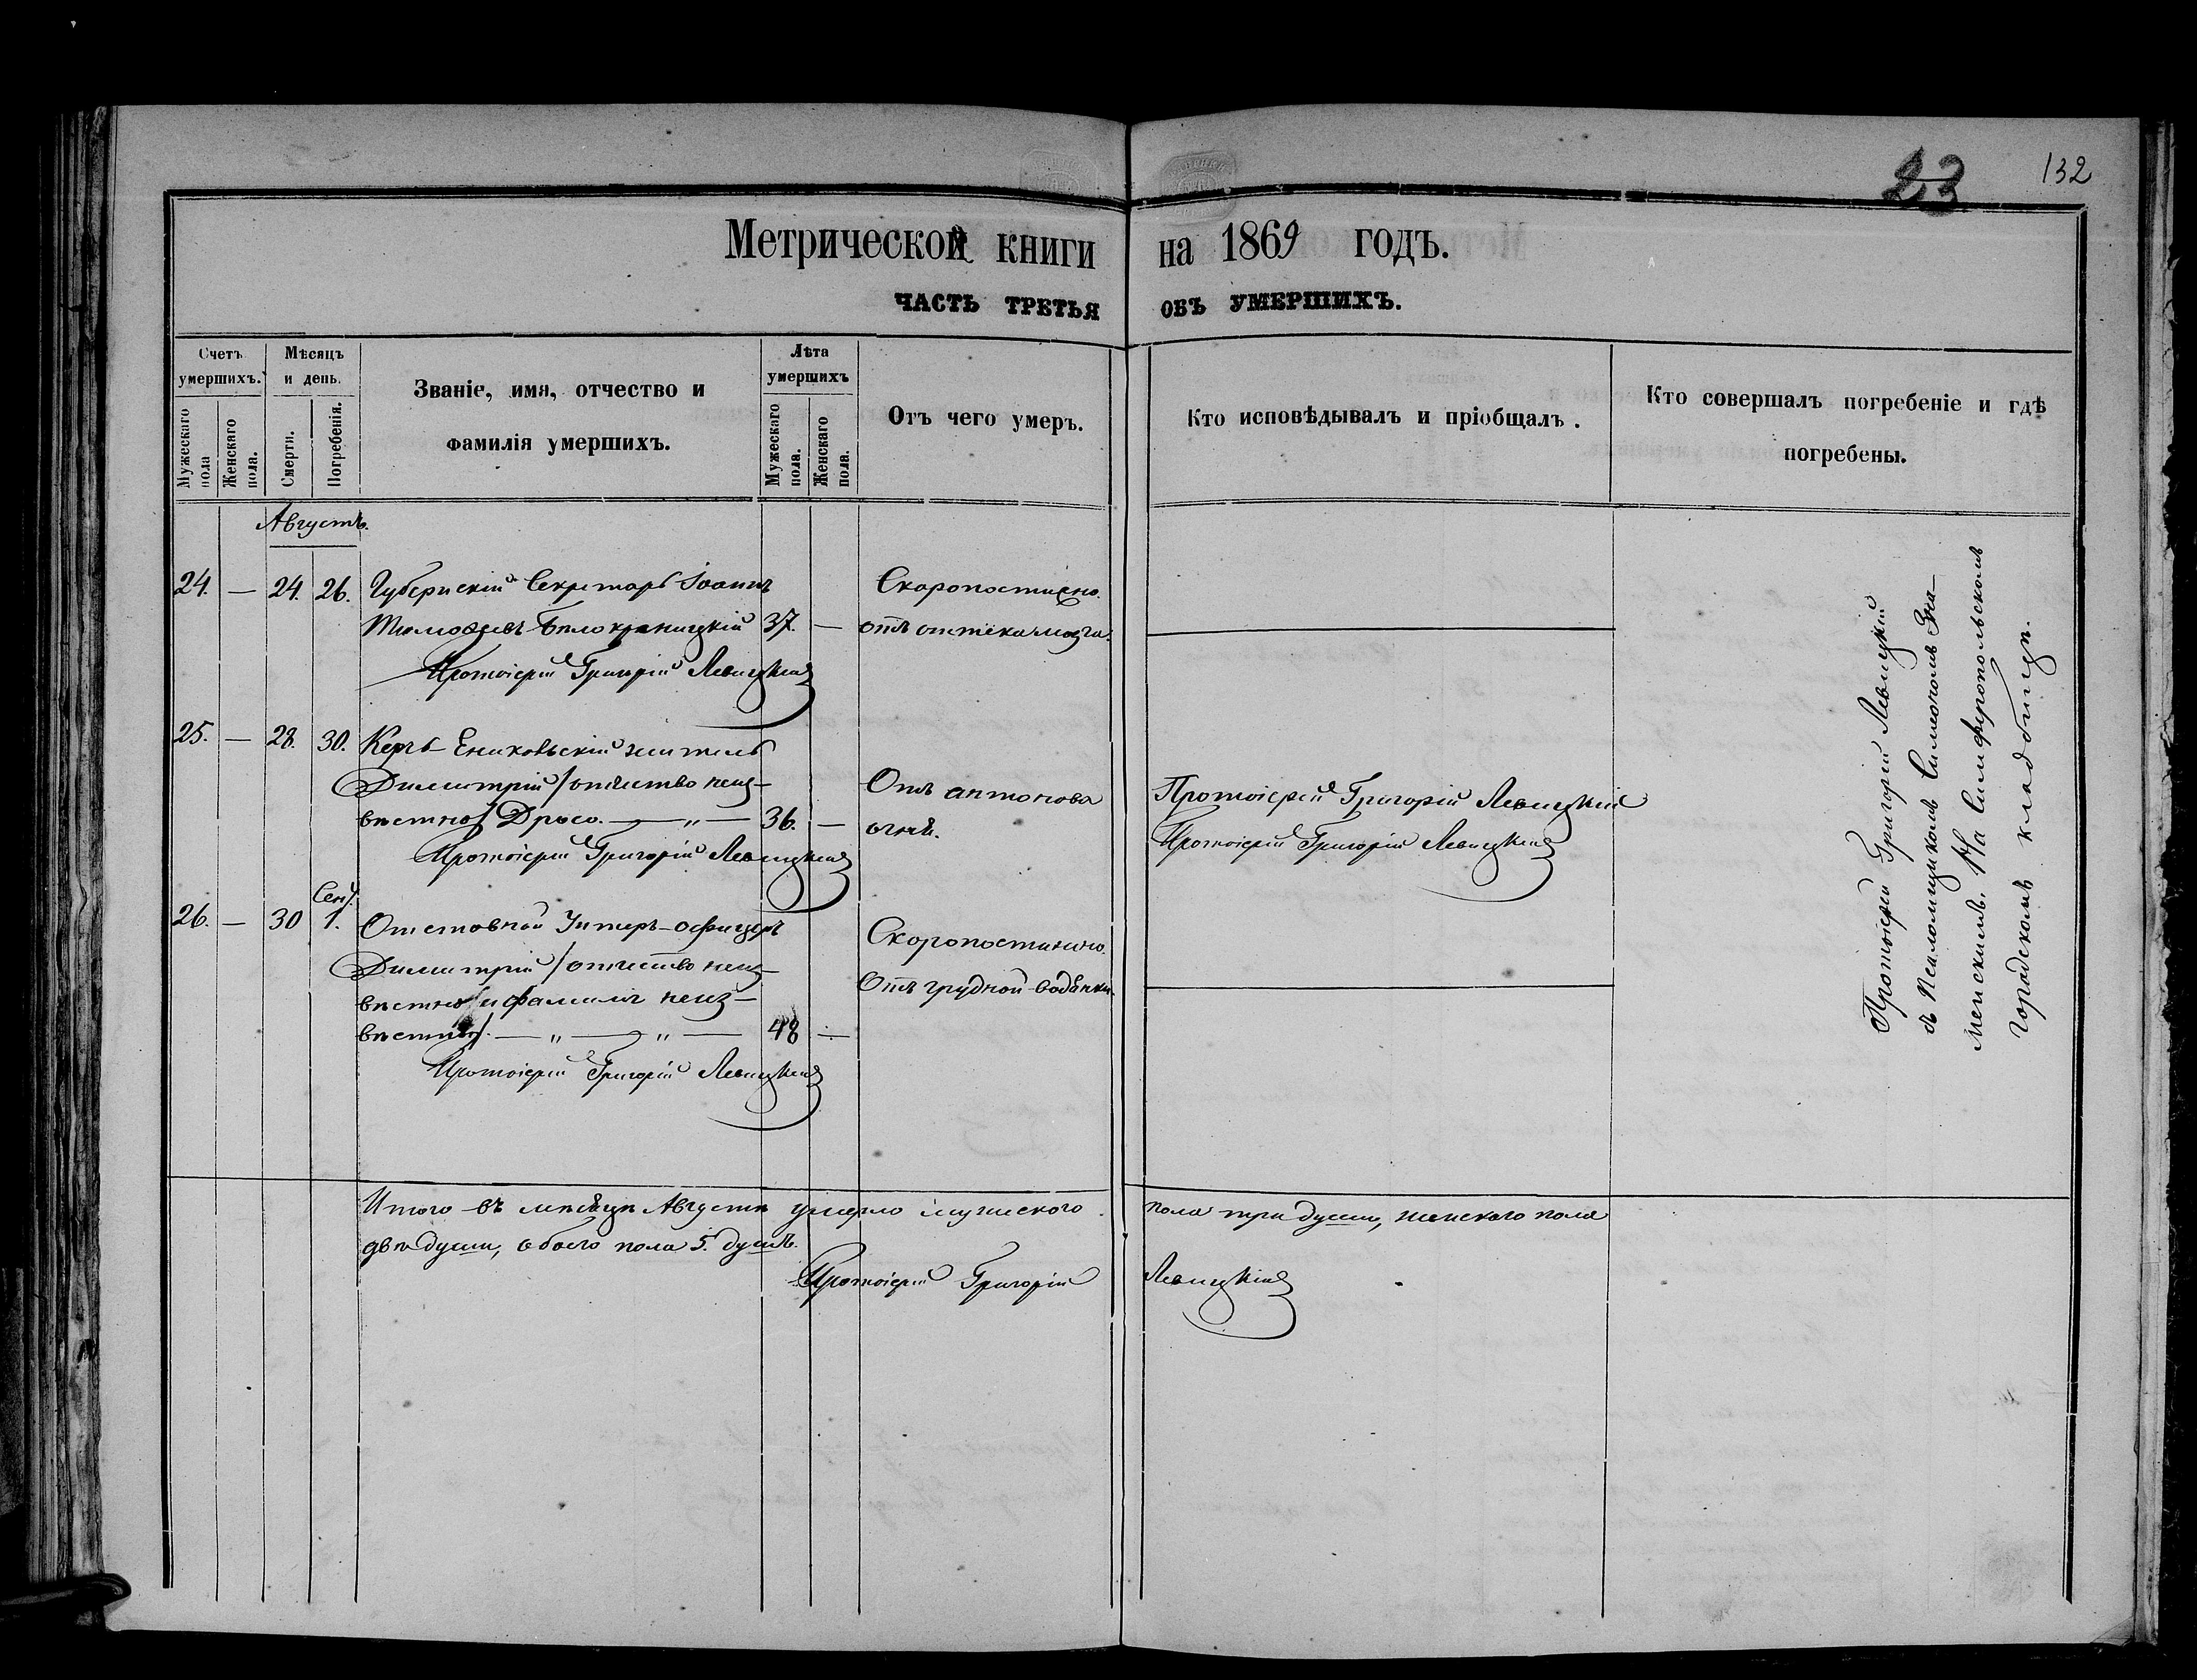 23
132
Метрической книги на 1869 годъ.
ЧАСТЬ ТРЕТЬЯ ОБЪ УМЕРШИХЪ.
Счетъ умершихъ.
Мужескаго пола
Женскаго пола.
Мѣсяцъ и день.
Смерти.
Погребенія.
Званіе, имя, отчество и
фамилія умершихъ.
Лѣта умершихъ
Мужескаго пола.
Женскаго пола.
Отъ чего умеръ.
Кто исповѣдывалъ и пріобщалъ.
Кто совершалъ погребеніе и гдѣ
погребены.
Августъ.
24. — 24. 26. Губернскій Секретарь Іоаннъ
Тимофѣевъ Бѣлокриницкій 37. —
Скоропостижно.
отъ оттека мозга.
Протоіерей Григорій Левицкій
25. — 28. 30. Керчь Еникольскій житель
Димитрій /отчество неиз-
вѣстно/ Дросо. — „ — 36. —
Отъ антонова
огня.
Протоіерей Григорій Левицкій
Протоіерей Григорій Левицкій
Протоіерей Григорій Левицкій
Сент.
26. — 30 1. Отставной Унтеръ-офицеръ
Димитрій /отчество неиз-
вѣстно и фамилія неиз-
вѣстны/. — „ — „ — 48 —
Скоропостижно.
Отъ грудной водянки.
Протоіерей Григорій Левицкій
Протоіерей Григорій Левицкій
съ Псаломщикомъ Симономъ Зна-
менскимъ. На Симферопольскомъ
городскомъ кладбищѣ.
Итого въ мѣсяцѣ Августѣ умерло мужескаго пола три души, женскаго пола
двѣ души, обоего пола 5. душъ.
Протоіерей Григорій Левицкій